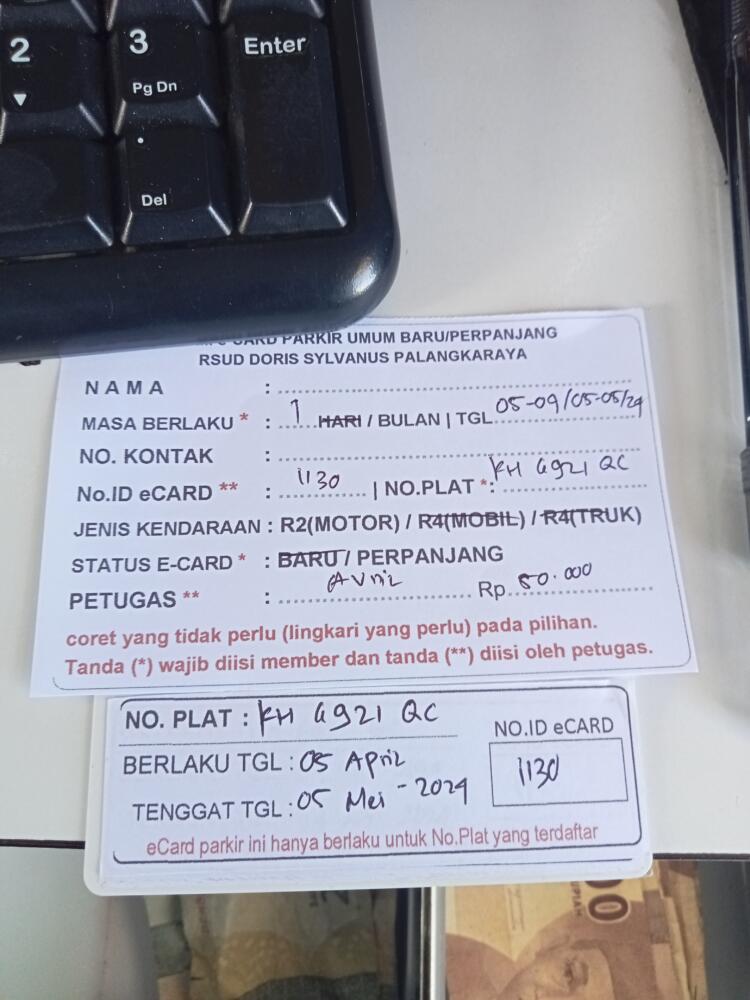 2
3
Enter
Pg Dn
Del
CARD PARKIR UMUM BARU/PERPANJANG
RSUD DORIS SYLVANUS PALANGKARAYA
NAMA :
MASA BERLAKU * : 1 HARI / BULAN | TGL 05-04/05-05/24
NO. KONTAK :
No.ID eCARD ** : 1130 | NO.PLAT *: KH 4921 QC
JENIS KENDARAAN : R2(MOTOR) / R4(MOBIL) / R4(TRUK)
STATUS E-CARD * : BARU / PERPANJANG
PETUGAS ** : Rp. 50.000
coret yang tidak perlu (lingkari yang perlu) pada pilihan.
Tanda (*) wajib diisi member dan tanda (**) diisi oleh petugas.
NO. PLAT : KH 4921 QC
NO.ID eCARD
BERLAKU TGL : 05 April
1130
TENGGAT TGL : 05 Mei - 2024
eCard parkir ini hanya berlaku untuk No.Plat yang terdaftar